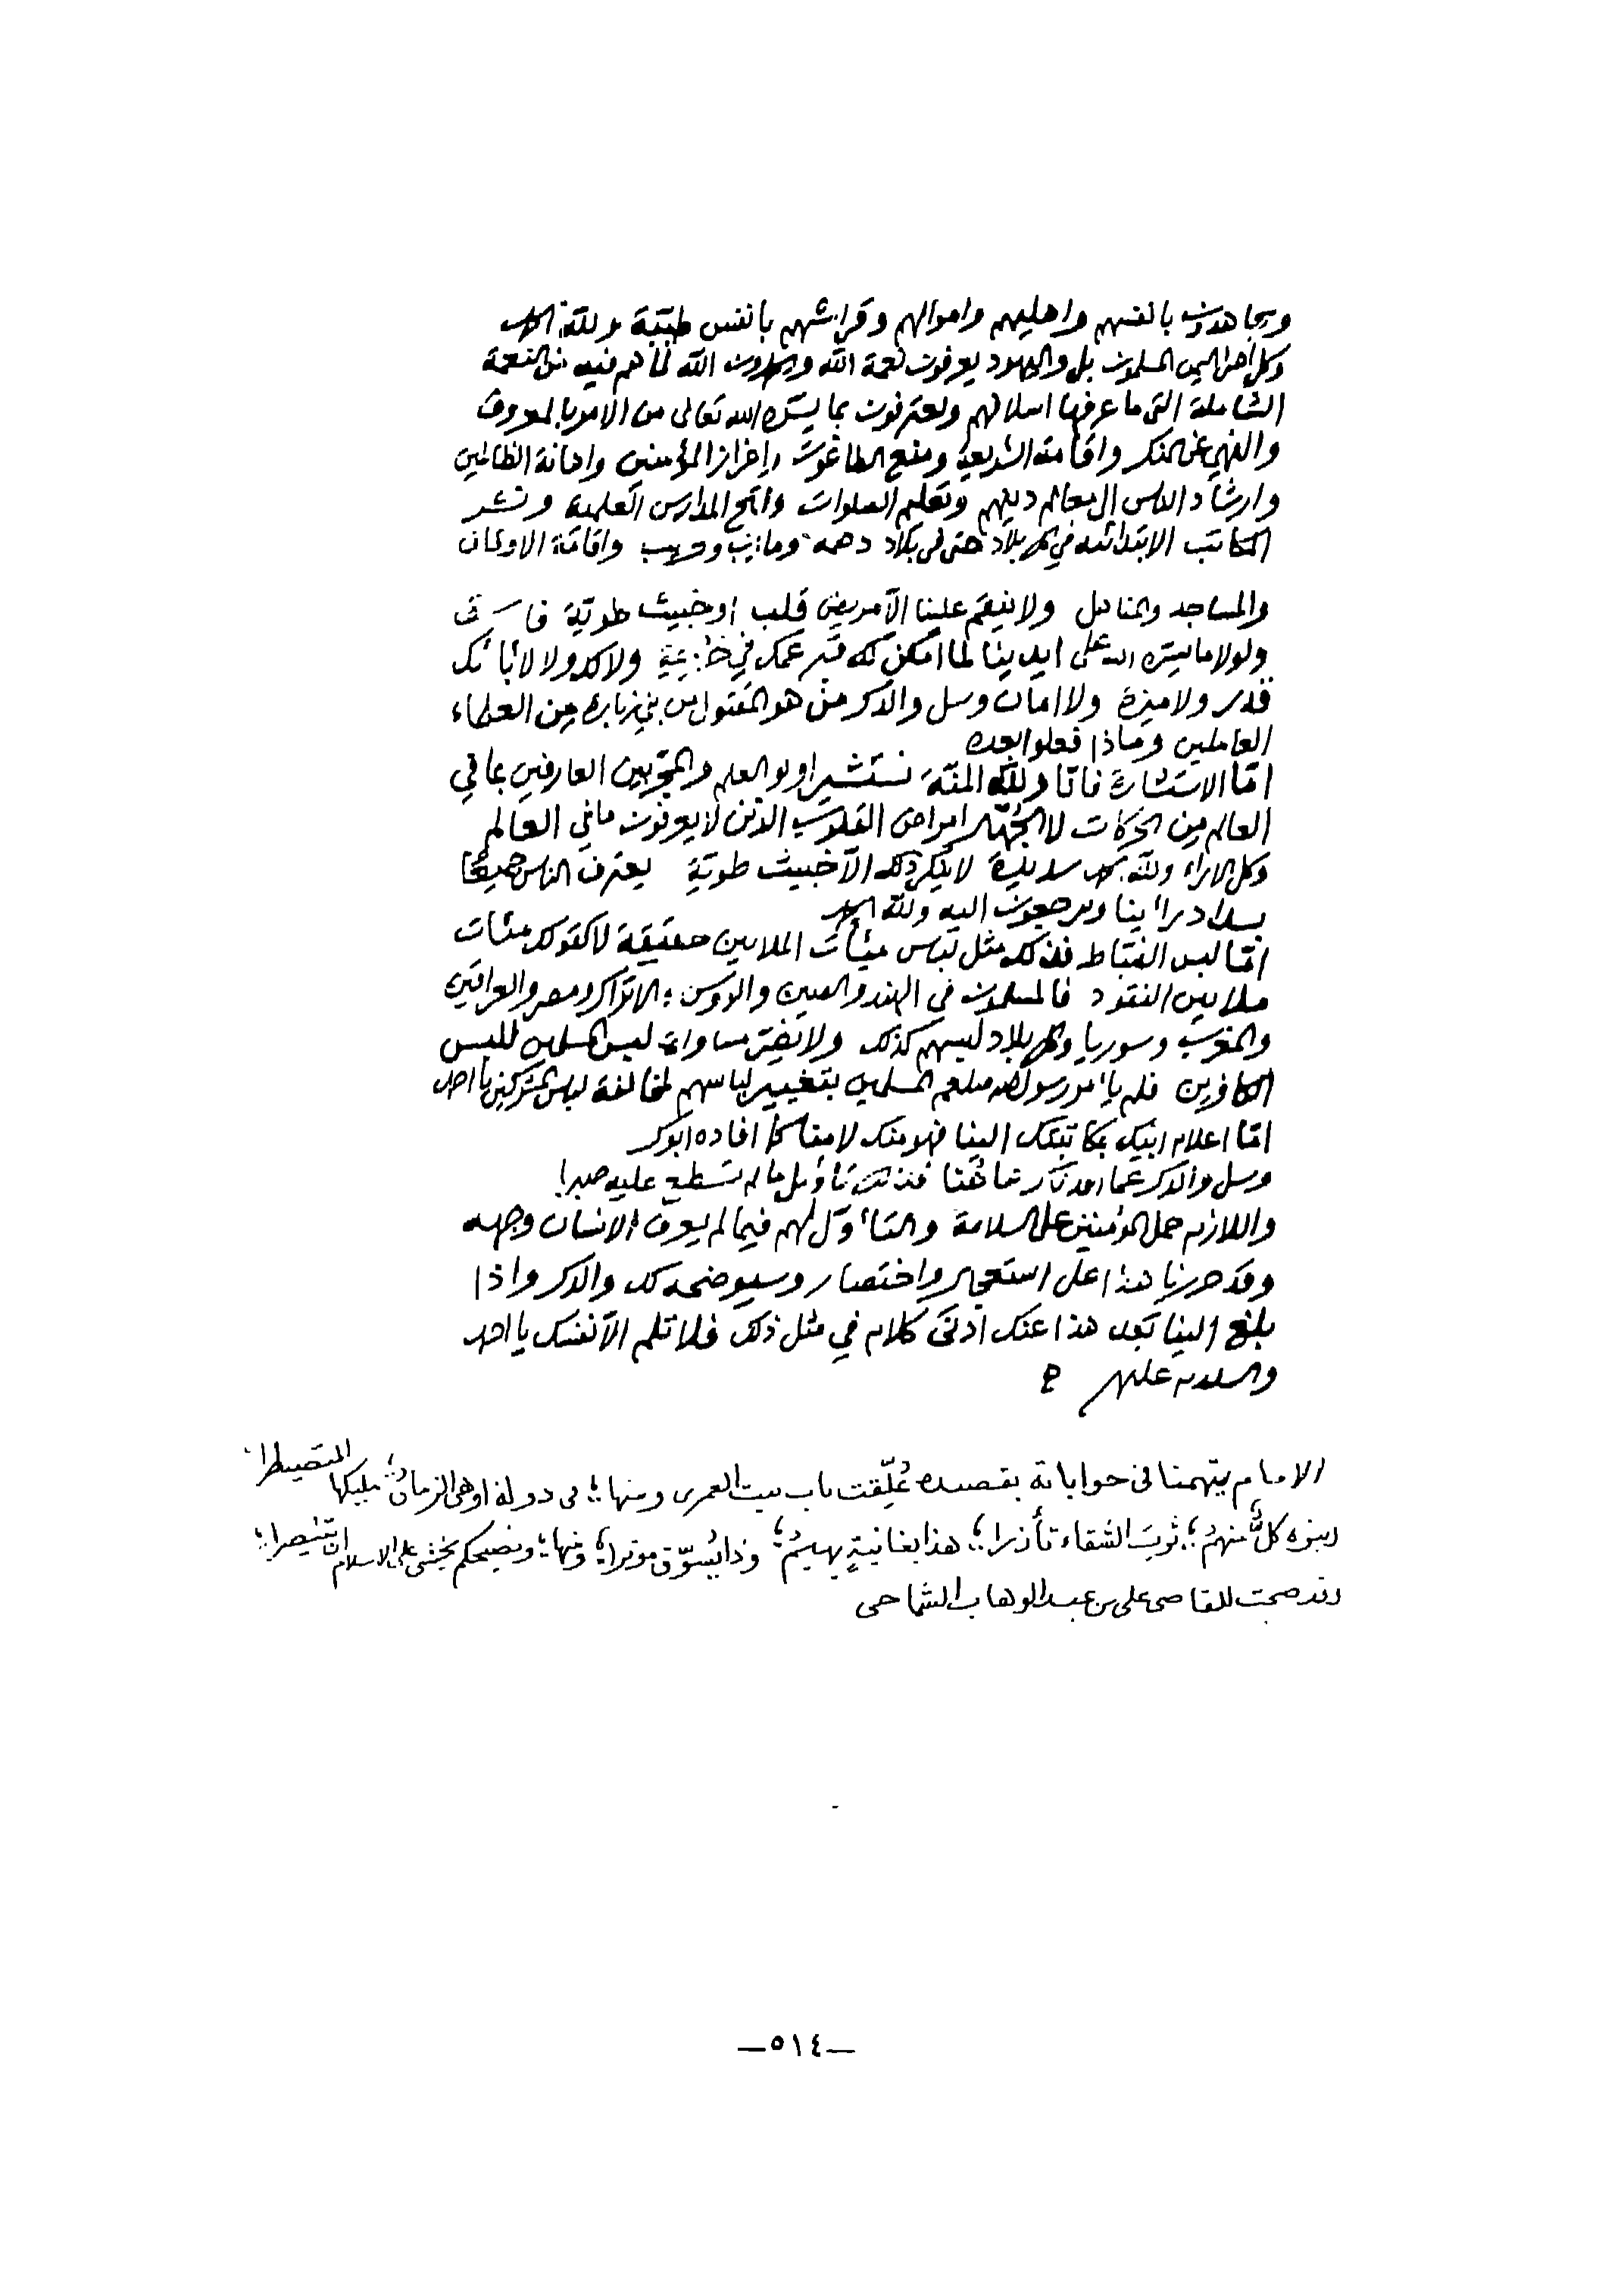 ويجاهدون بانفسهم واهليهم واموالهم وقراشهم بانفس طيبة ولله الحمد
وكل اهل اليمن المسلمون بل واليهود يعرفون نعمة الله ويحمدون الله لما هم فيه من النعمة
الشاملة التي ما عرفها اسلافهم ويعترفون بما يسره الله تعالى من الامر بالمعروف
والنهي عن المنكر واقامة الشريعة ومنع الطاغوت وإعزاز المؤمنين واهانة الظالمين
وارشاد الناس الى معالم دينهم وتعليم الصلوات وفتح المدارس العلمية ونشر
المكاتب الابتدائيه في كل بلاد حتى في بلاد دهمه ومأرب وحريب واقامة الاركان
والمساجد والمناهل ولا ينقم علينا الّا مريض قلب اوخبيث طويّة فاسق
ولولا ما يسره الله على ايدينا لما امكن لك قبر عمك في ولا لك ولا لابائك
قدر ولا ميزة ولا امان وسل والدكر من هو المقتول من بني زبارة من العلماء
العاملين وماذا فعلوا بعده
امّا الاستشارة فانّا ولله المنّة نستشير اولو العلم والمجرّبين العارفين بما في
العالم من الحركات لا الجُهّال امراض القلوب الذين لا يعرفون ما في العالم
وكل الاراء ولله الحمد سديدة لا ينكر ذلك الّا خبيث طويّةٍ يعترف الناس جميعًا
بسداد رأينا ويرجعون اليه ولله الحمد
امّا لبس الضبّاط فذلك مثل لباس مئات الملايين حقيقة لا كقولك مئات
ملايين النقود فالمسلمون في الهند والصين والروس والاتراك ومصر والعراقين
والمغرب وسوريا وكل بلاد لبسهم كذلك ولا يضرّ مساواة لبس المسلمين للبس
الكافرين فلم يأمر رسول الله صلعم المسلمين بتغيير لباسهم لمخالفة لباس المشركين يا احمد
امّا اعلام ابنيك بمكاتبتك الينا فهو منك لا منا كما افاده ابوكر
وسل والدكر عما فذلك تأويل ما لم تسطع عليه صبرا
واللازم حمل المؤمنين على السلامة والتأوّل لهم فيما لم يعرف الانسان وجهه
وقد حررنا هذا على استعجال واختصار وسيوضحه لك والدكر واذا
بلغ الينا بعد هذا عنك ادنى كلام في مثل ذلك فلا تلم الّا نفسك يا احمد
والسلام عليكم
الامام يتهمنا في جواباته بقصيده عُلّقت بباب بيت العمري ومنها؛ في دولة اوهى الزمان مليكها المتصيطرا
وبنوه كلٌّ منهمُ؛ ثوبَ الشقاء تأزرا؛ هذا بغانيةٍ يهيمُ؛ وذا يُسوّق موترا؛ ومنها؛ ونصيحكم يخشى على الاسلام ان يتنصرا؛
وقد صحت للقاضي علي بن عبد الوهاب الشماحي
—٥١٤—